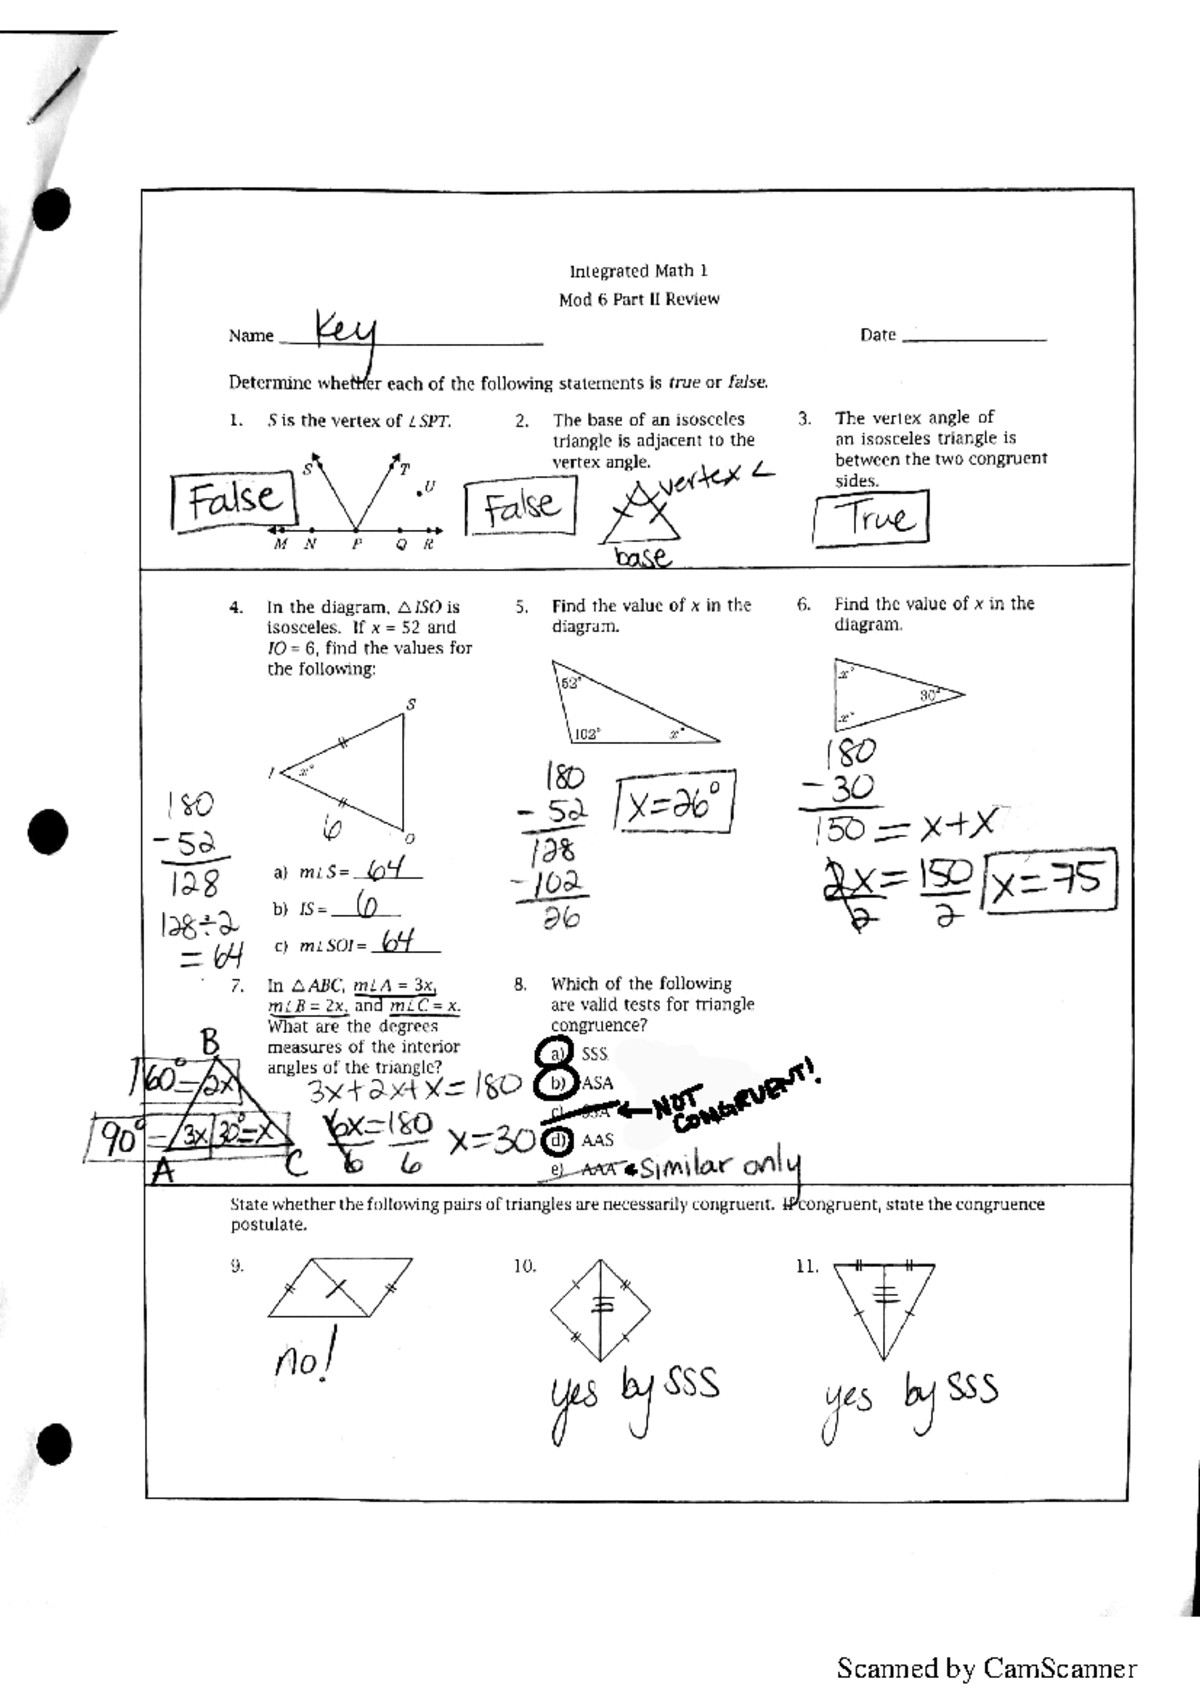 Integrated Math 1
Mod 6 Part II Review
Name Key Date
Determine whether each of the following statements is true or false.
1. S is the vertex of ∠SPT.
S T U
M N P Q R
False
2. The base of an isosceles
triangle is adjacent to the
vertex angle.
False
vertex ∠
base
3. The vertex angle of
an isosceles triangle is
between the two congruent
sides.
True
4. In the diagram, △ISO is
isosceles. If x = 52 and
IO = 6, find the values for
the following:
S
I x°
6 O
180
- 52
128
128÷2
= 64
a) m∠S = 64
b) IS = 6
c) m∠SOI = 64
5. Find the value of x in the
diagram.
52°
102° x°
180
- 52
128
-102
26
x=26°
6. Find the value of x in the
diagram.
x°
30°
x°
180
- 30
150 = x+x
2x = 150
2 2
x=75
7. In △ABC, m∠A = 3x,
m∠B = 2x, and m∠C = x.
What are the degrees
measures of the interior
angles of the triangle?
B
60°=2x
90°=3x 30°=x
A C
3x+2x+x=180
6x=180
6 6
x=30
8. Which of the following
are valid tests for triangle
congruence?
a) SSS
b) ASA
c) SSA ← NOT
CONGRUENT!
d) AAS
e) AAA similar only
State whether the following pairs of triangles are necessarily congruent. If congruent, state the congruence
postulate.
9.
no!
10.
yes by SSS
11.
yes by SSS
Scanned by CamScanner